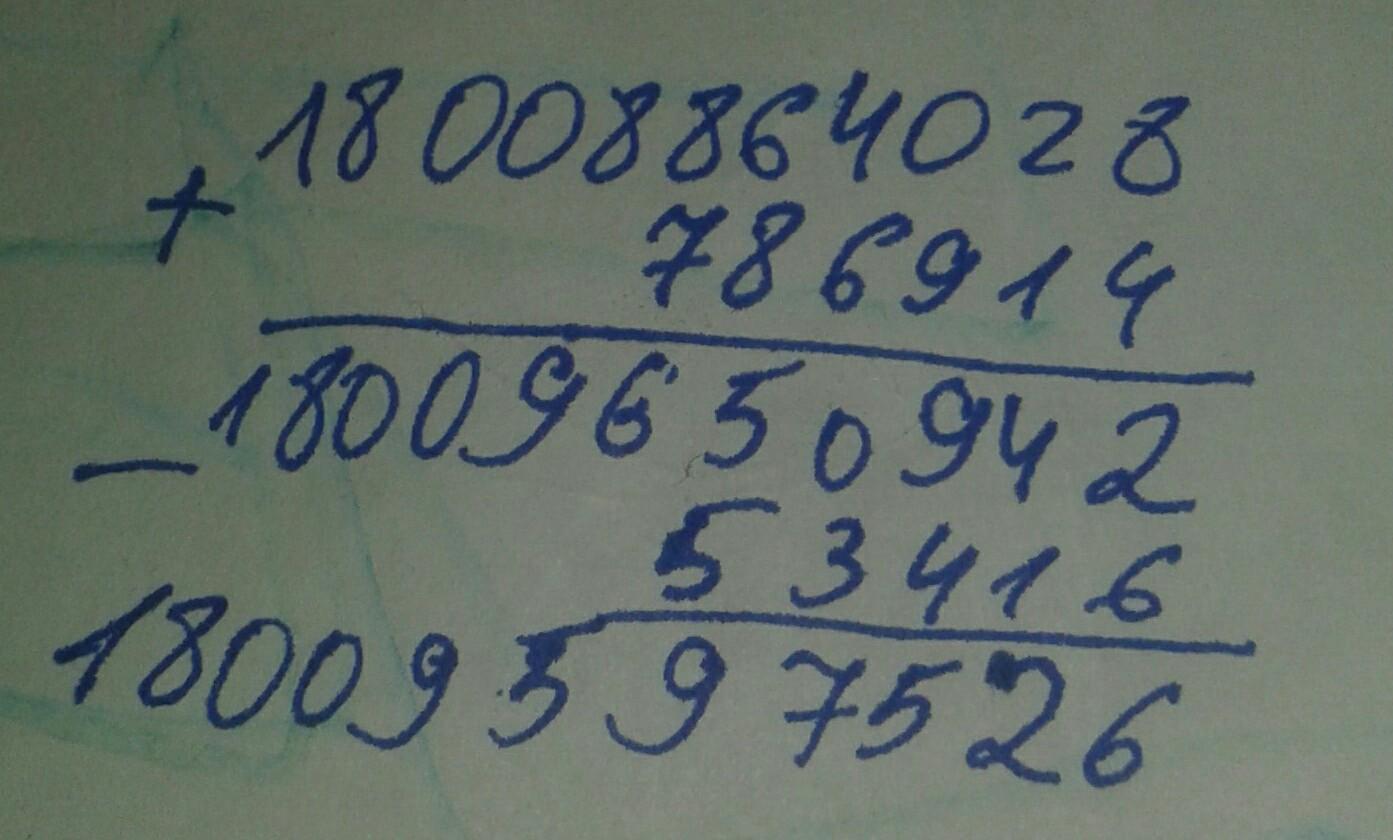 18008864028
+ 786914
- 18009650942
53416
18009597526